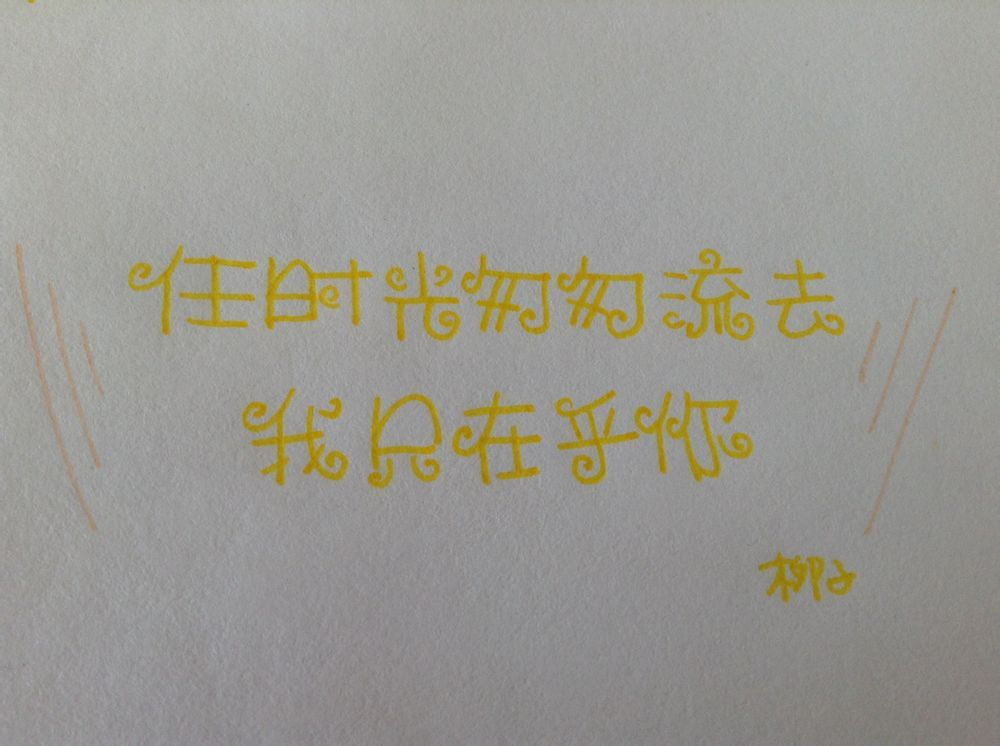 任时光匆匆流去
我只在乎你
柳子